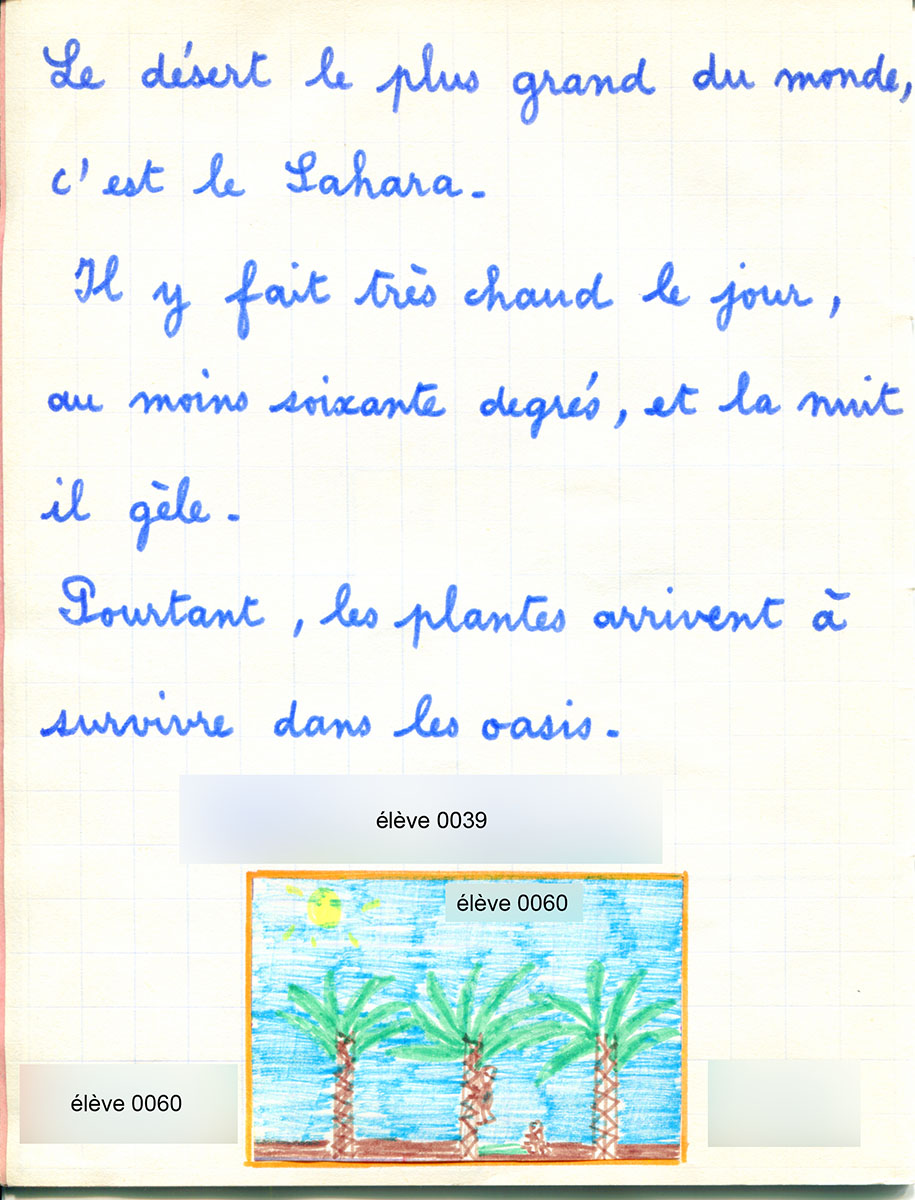 Le désert le plus grand du monde,
c'est le Sahara.
Il y fait très chaud le jour,
au moins soixante degrés, et la nuit
il gèle.
Pourtant, les plantes arrivent à
survivre dans les oasis.
élève 0039
élève 0060
élève 0060